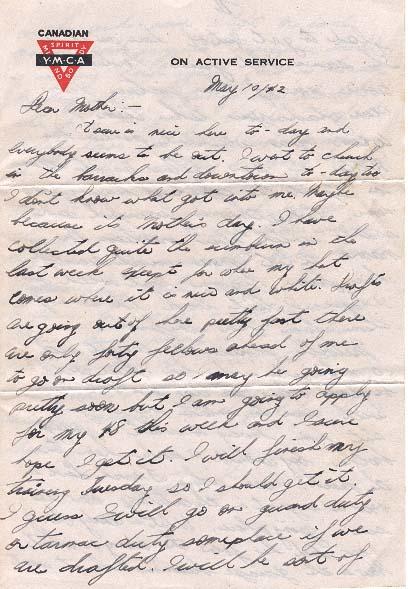 CANADIAN
SPIRIT
Y·M·C·A
MIND BODY
ON ACTIVE SERVICE
May 10/42
Dear Mother:-
It sure is nice here to-day and
everybody seems to be out. I went to church
in the barracks and downtown to-day too
I don't know what got into me. Maybe
because its Mother's day. I have
collected quite the sunburn in the
last week except for where my hat
comes where it is nice and white. Drafts
are going out of here pretty fast there
are only forty fellows ahead of me
to go on draft so I may be going
pretty soon but I am going to apply
for my 48 this week and I sure
hope I get it. I will finish my
training Tuesday so I should get it.
I guess I will go on guard duty
or tarmac duty someplace if we
are drafted. I will be sort of